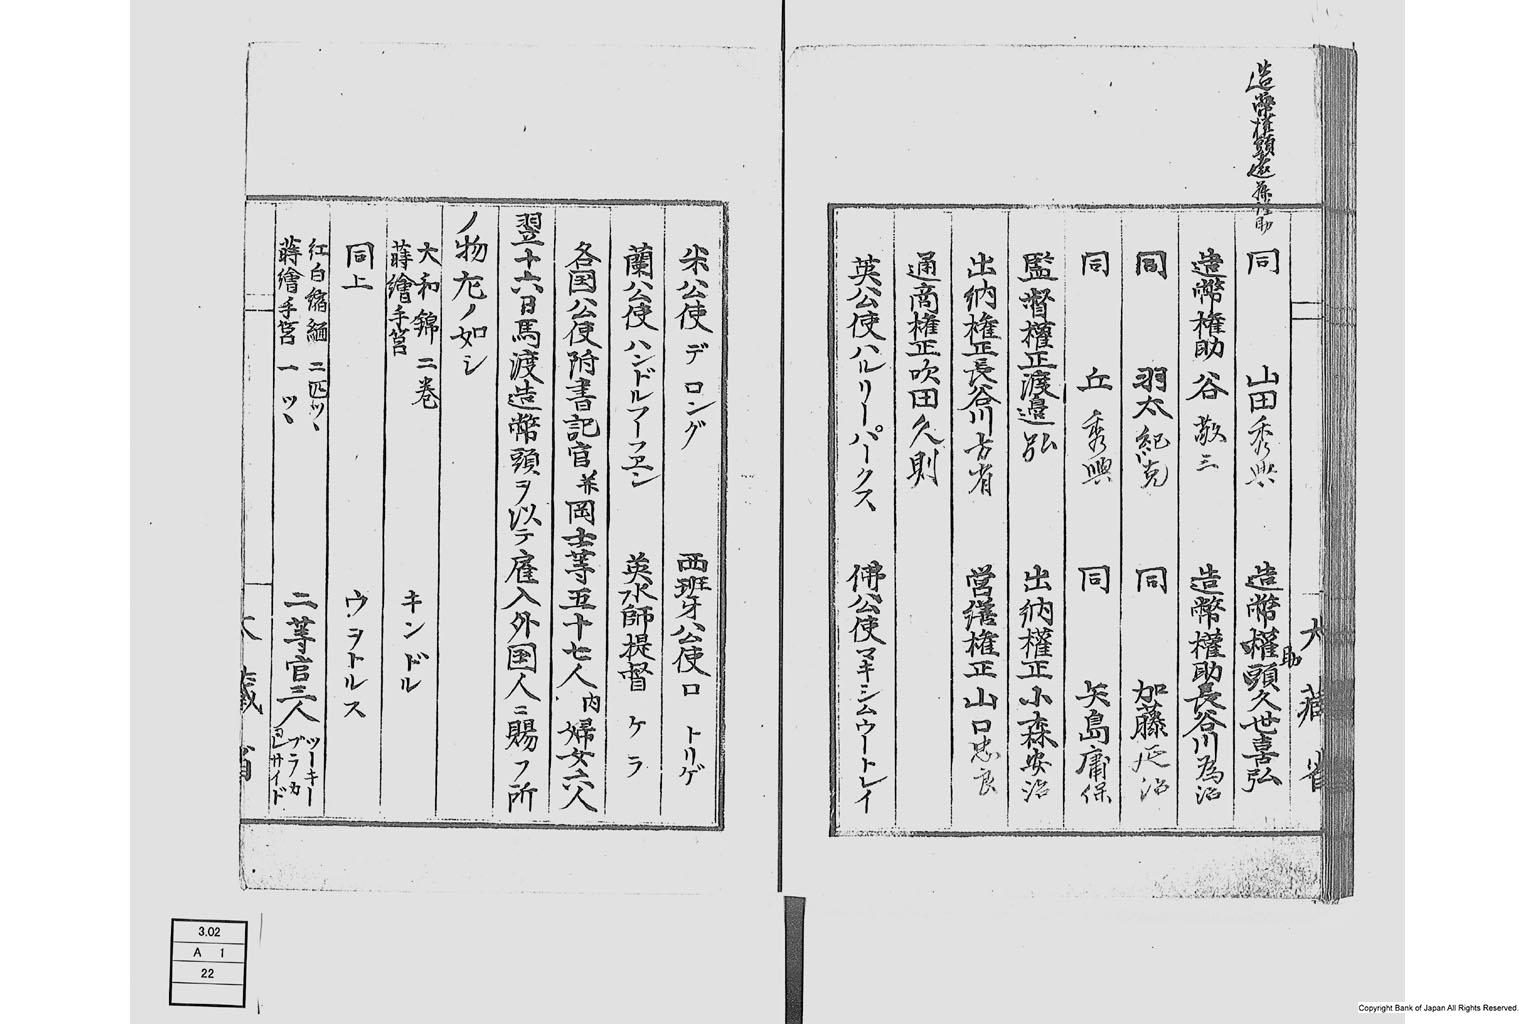 造幣權頭遠藤謹助
大藏省
同 山田秀典 造幣權頭久世喜弘
助
造幣権助谷敬三 造幣權助長谷川為治
同 羽太紀克 同 加藤延治
同 丘秀興 同 矢島庸保
監督權正渡邉弘 出納權正小森安治
出納権正長谷川方省 営繕権正山口忠良
通商権正吹田久則
英公使ハルリーパークス 佛公使マキシムウートレイ
米公使デロング 西班牙公使ロトリゲ
蘭公使ハンドルフーフエン 英水師提督ケラ
各国公使附書記官并岡士等五十七人内婦女六人
翌十六日馬渡造幣頭ヲ以テ雇入外国人ニ賜フ所
ノ物左ノ如シ
大和錦二巻
蒔繪手筥 キンドル
同上 ウヲトルス
紅白縮緬二匹ツヽ
蒔繪手筥一ツヽ 二等官三人 ツーキー
ブラカ
ヨレサイド
大藏省
3.02
A 1
22
Copyright Bank of Japan All Rights Reserved.